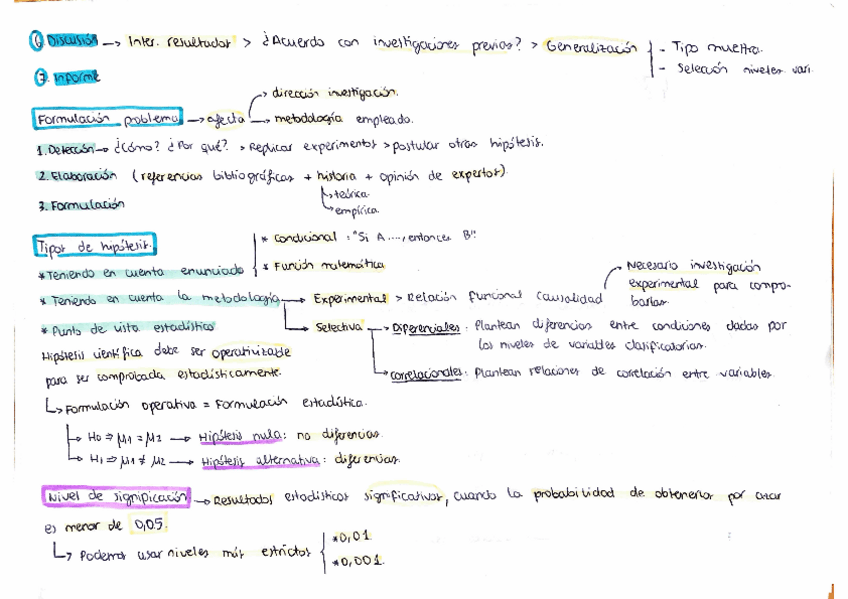 6. Discusión → Inter. resultados > ¿Acuerdo con investigaciones previas? > Generalización { - Tipo muestra.
- Selección niveles vari.
7. Informe
Formulación problema → afecta → dirección investigación.
→ metodología empleada.
1. Detección → ¿Cómo? ¿Por qué? > Replicar experimentos > postular otras hipótesis.
2. Elaboración (referencias bibliográficas + historia + opinión de expertos).
→ teórica.
→ empírica.
3. Formulación
Tipos de hipótesis.
* Teniendo en cuenta enunciado { * Condicional: "Si A ...., entonces B".
* Función matemática
* Teniendo en cuenta la metodología → Experimental > Relación funcional causalidad → Necesario investigación
experimental para compro-
barlas.
→ Selectiva → Diferenciales: Plantean diferencias entre condiciones dadas por
los niveles de variables clasificatorias.
→ Correlacionales: Plantean relaciones de correlación entre variables.
* Punto de vista estadístico
Hipótesis científica debe ser operativizable
para ser comprobada estadísticamente.
↳ Formulación operativa = Formulación estadística.
→ H0 ⇒ μ1 = μ2 → Hipótesis nula: no diferencias.
→ H1 ⇒ μ1 ≠ μ2 → Hipótesis alternativa: diferencias.
Nivel de significación → Resultados estadísticos significativos, cuando la probabilidad de obtenerlos por azar
es menor de 0,05.
↳ Podemos usar niveles más estrictos { * 0,01
* 0,001.